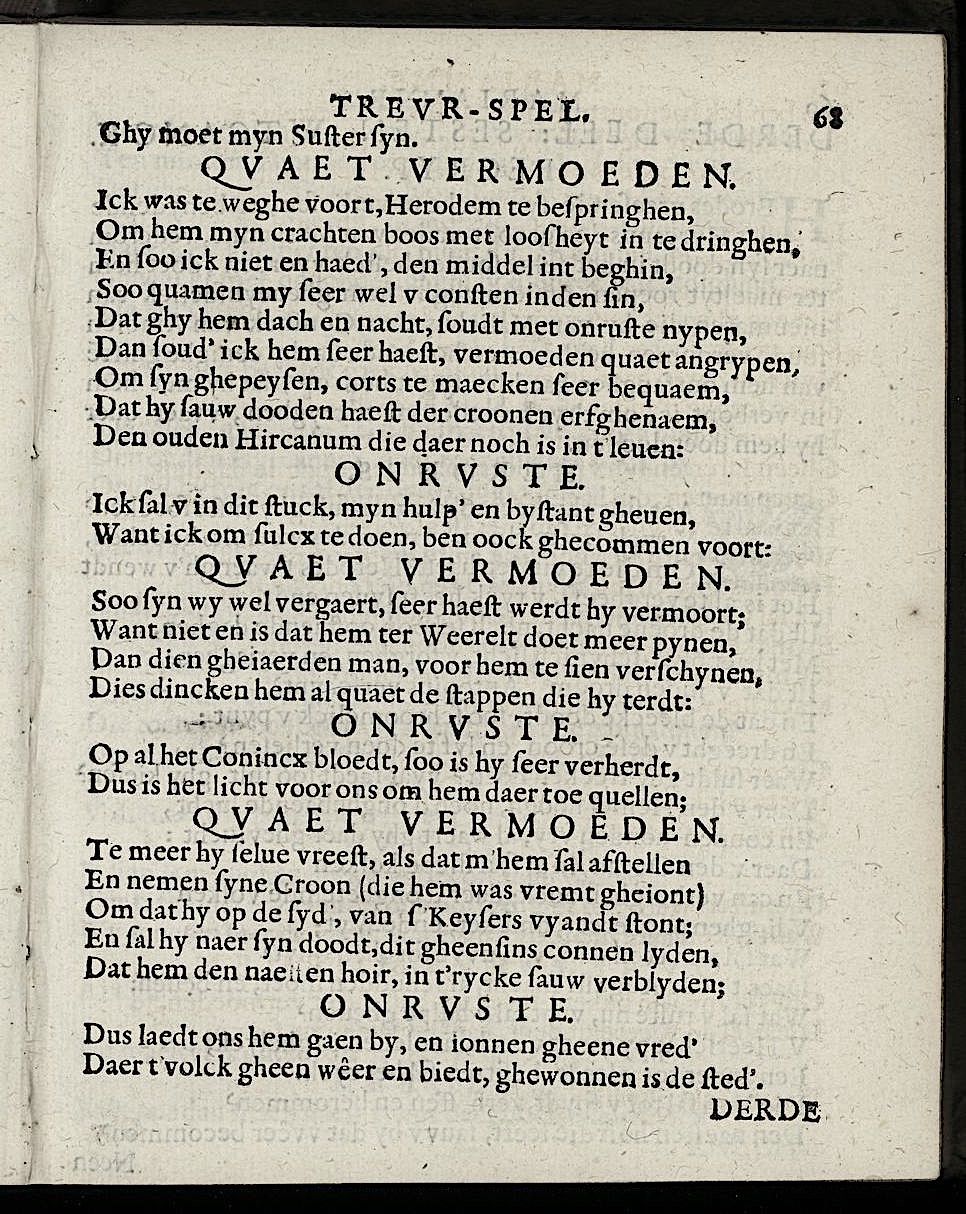 TREVR-SPEL. 68
Ghy moet myn Suſter ſyn.
QVAET VERMOEDEN.
Ick was te weghe voort, Herodem te beſpringhen,
Om hem myn crachten boos met looſheyt in te dringhen,
En ſoo ick niet en haed', den middel int beghin,
Soo quamen my ſeer wel v conſten inden ſin,
Dat ghy hem dach en nacht, ſoudt met onruſte nypen,
Dan ſoud' ick hem ſeer haeſt, vermoeden quaet angrypen,
Om ſyn ghepeyſen, corts te maecken ſeer bequaem,
Dat hy ſauw dooden haeſt der croonen erfghenaem,
Den ouden Hircanum die daer noch is in t'leuen:
ONRVSTE.
Ick ſal v in dit ſtuck, myn hulp' en byſtant gheuen,
Want ick om ſulcx te doen, ben oock ghecommen voort:
QVAET VERMOEDEN.
Soo ſyn wy wel vergaert, ſeer haeſt werdt hy vermoort;
Want niet en is dat hem ter Weerelt doet meer pynen,
Dan dien gheiaerden man, voor hem te ſien verſchynen,
Dies dincken hem al quaet de ſtappen die hy terdt:
ONRVSTE.
Op al het Conincx bloedt, ſoo is hy ſeer verherdt,
Dus is het licht voor ons om hem daer toe quellen;
QVAET VERMOEDEN.
Te meer hy ſelue vreeſt, als dat m'hem ſal afſtellen
En nemen ſyne Croon (die hem was vremt gheiont)
Om dat hy op de ſyd', van ſ'Keyſers vyandt ſtont;
En ſal hy naer ſyn doodt, dit gheenſins connen lyden,
Dat hem den naeſten hoir, in t'rycke ſauw verblyden;
ONRVSTE.
Dus laedt ons hem gaen by, en ionnen gheene vred'
Daer t'volck gheen wêer en biedt, ghewonnen is de ſted'.
DERDE